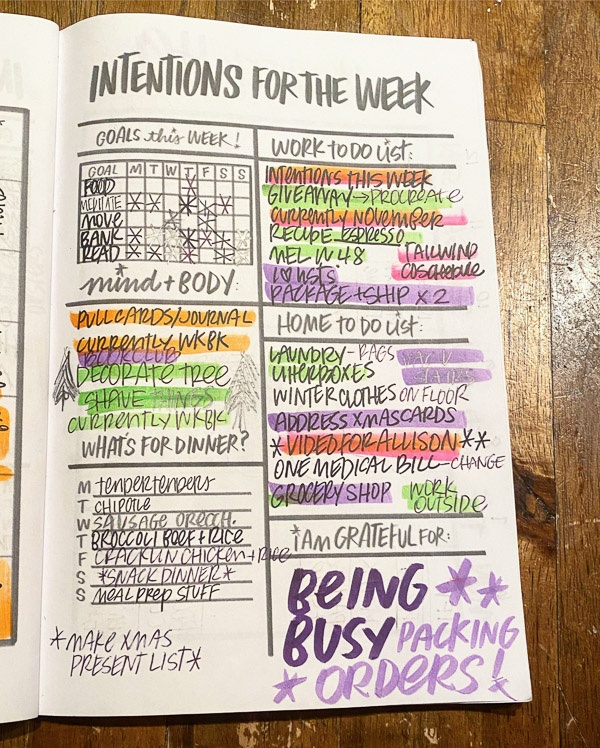 INTENTIONS FOR THE WEEK
GOALS this WEEK!
GOAL M T W T F S S
FOOD
MEDITATE
MOVE
BANK
READ
mind + BODY:
PULL CARDS/JOURNAL
CURRENTLY WKBK
BOOKCLUB
DECORATE TREE
SHAVE THINGS
CURRENTLY WKBK
WHAT'S FOR DINNER?
M TENDERTENDERS
T CHIPOTLE
W SAUSAGE ORECCH.
T BROCCOLI BEEF + RICE
F CRACKLIN CHICKEN + RICE
S *SNACK DINNER*
S MEAL PREP STUFF
*MAKE XMAS
PRESENT LIST*
WORK TO DO LIST:
INTENTIONS THIS WEEK
GIVEAWAY → PROCREATE
CURRENTLY NOVEMBER
RECIPE - ESPRESSO
MEL W48
TAILWIND
COSCHEDULE
I ♥ LISTS
PACKAGE + SHIP X 2
HOME TO DO LIST:
LAUNDRY - RAGS
WINTER CLOTHES ON FLOOR
ADDRESS XMAS CARDS
*VIDEO FOR ALLISON**
ONE MEDICAL BILL - CHANGE
GROCERY SHOP
WORK
OUTSIDE
I AM GRATEFUL FOR:
BEING
BUSY PACKING
* ORDERS!